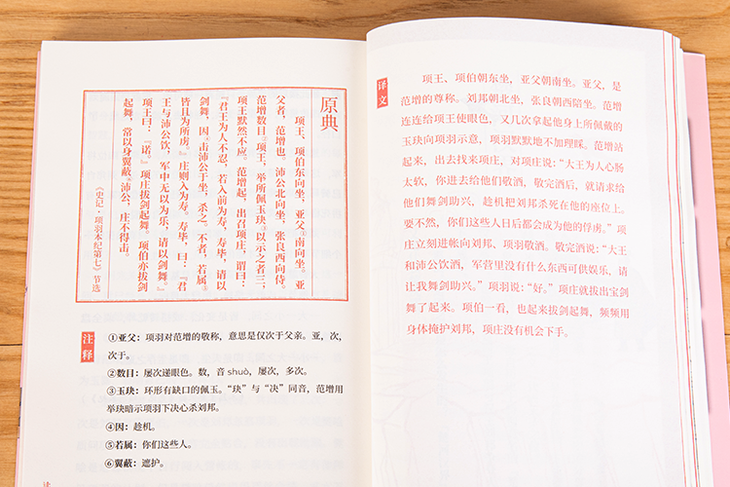 原典
项王、项伯东向坐，亚父①南向坐。亚
父者，范增也。沛公北向坐，张良西向侍。
范增数目②项王，举所佩玉玦③以示之者三，
项王默然不应。范增起，出召项庄，谓曰：
『君王为人不忍，若入前为寿，寿毕，请以
剑舞，因④击沛公于坐，杀之。不者，若属⑤
皆且为所虏。』庄则入为寿。寿毕，曰：『君
王与沛公饮，军中无以为乐，请以剑舞。』
项王曰：『诺。』项庄拔剑起舞。项伯亦拔剑
起舞，常以身翼蔽⑥沛公，庄不得击。
《史记·项羽本纪第七》节选
注释
①亚父：项羽对范增的敬称，意思是仅次于父亲。亚，次，
次于。
②数目：屡次递眼色。数，音 shuò，屡次，多次。
③玉玦：环形有缺口的佩玉。“玦”与“决”同音，范增用
举玦暗示项羽下决心杀刘邦。
④因：趁机。
⑤若属：你们这些人。
⑥翼蔽：遮护。
译文
项王、项伯朝东坐，亚父朝南坐。亚父，是
范增的尊称。刘邦朝北坐，张良朝西陪坐。范增
连连给项王使眼色，又几次拿起他身上所佩戴的
玉玦向项羽示意，项羽默默地不加理睬。范增站
起来，出去找来项庄，对项庄说：“大王为人心肠
太软，你进去给他们敬酒，敬完酒后，就请求给
他们舞剑助兴，趁机把刘邦杀死在他的座位上。
要不然，你们这些人日后都会成为他的俘虏。”项
庄立刻进帐向刘邦、项羽敬酒。敬完酒说：“大王
和沛公饮酒，军营里没有什么东西可供娱乐，请
让我舞剑助兴。”项羽说：“好。”项庄就拔出宝剑
舞了起来。项伯一看，也起来拔剑起舞，频频用
身体掩护刘邦，项庄没有机会下手。